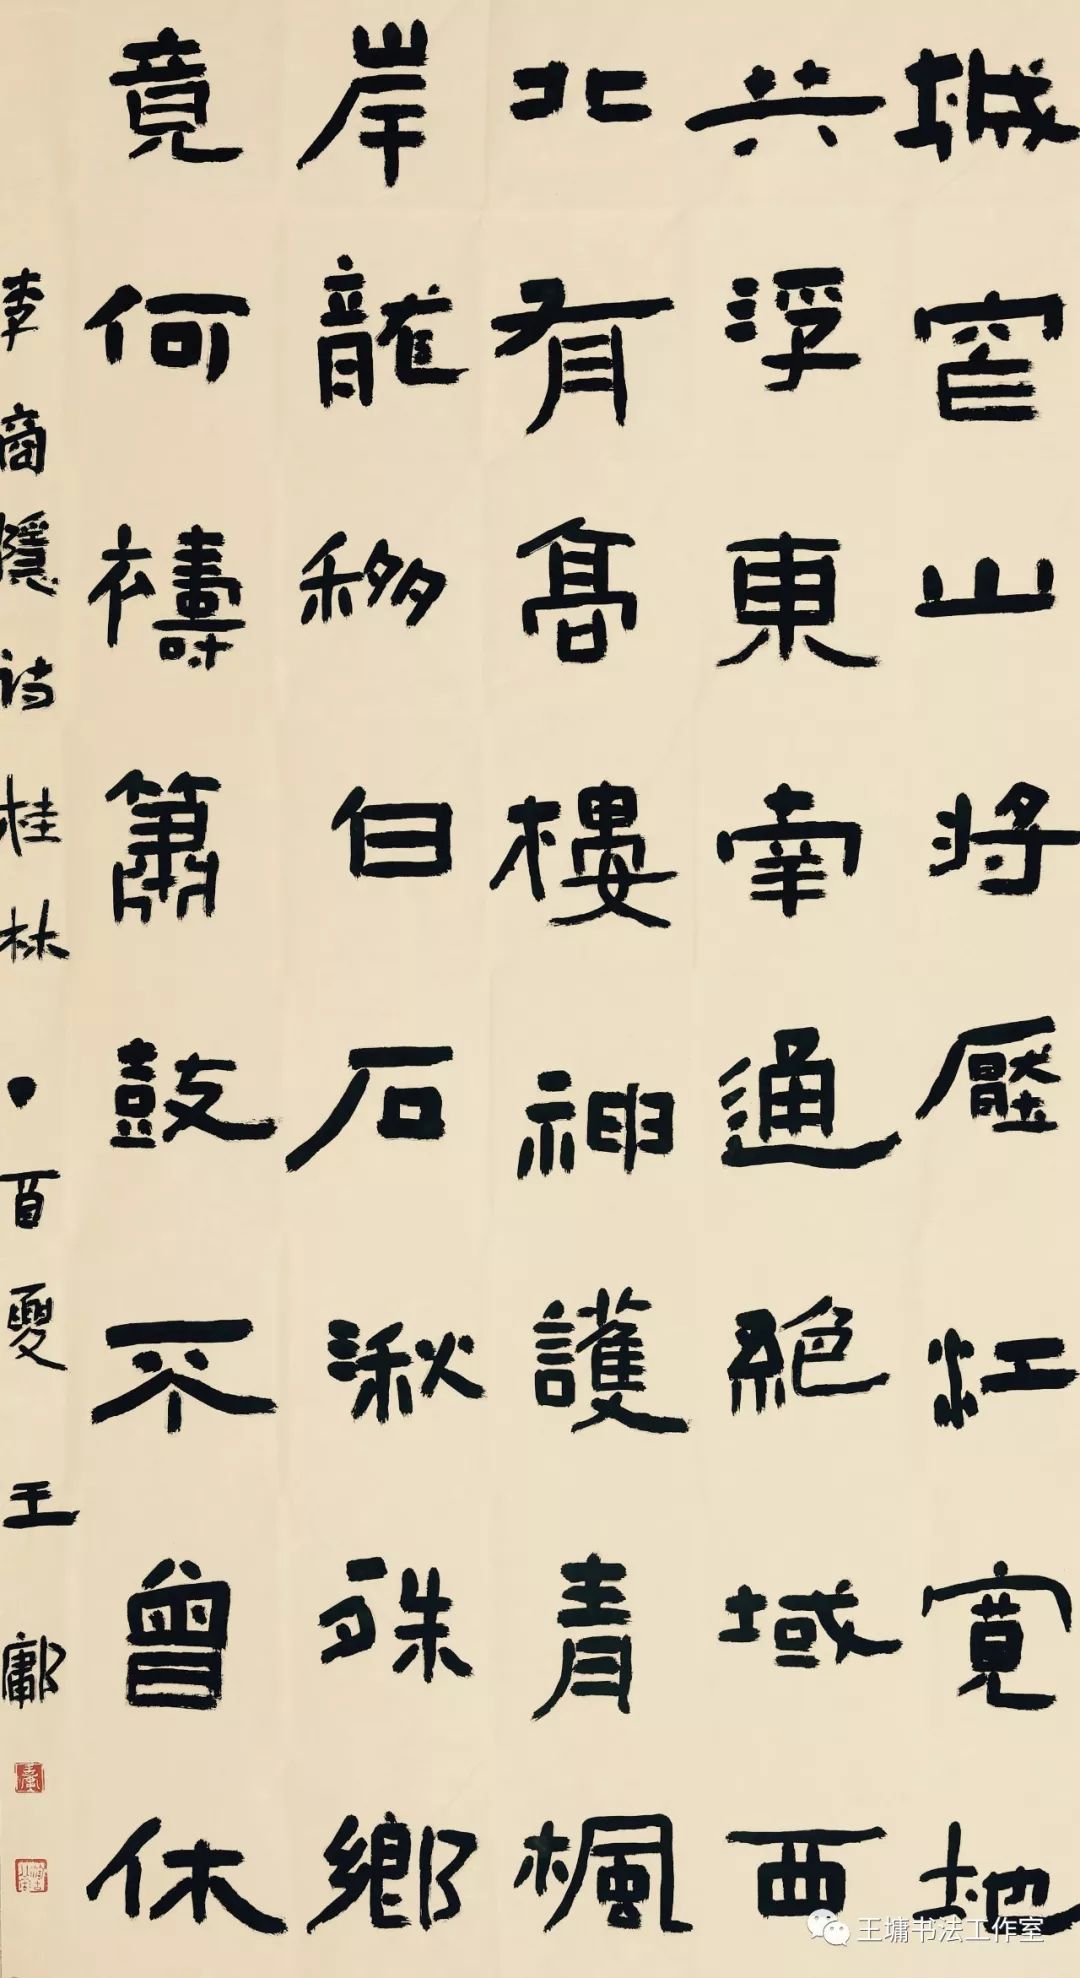 城窄山将壓江寬地
共浮東南通絕域西
北有髙樓神護青楓
岸龍移白石湫殊鄉
竟何禱簫鼓不曾休
李商隱诗桂林·首夏王鄘
王墉书法工作室